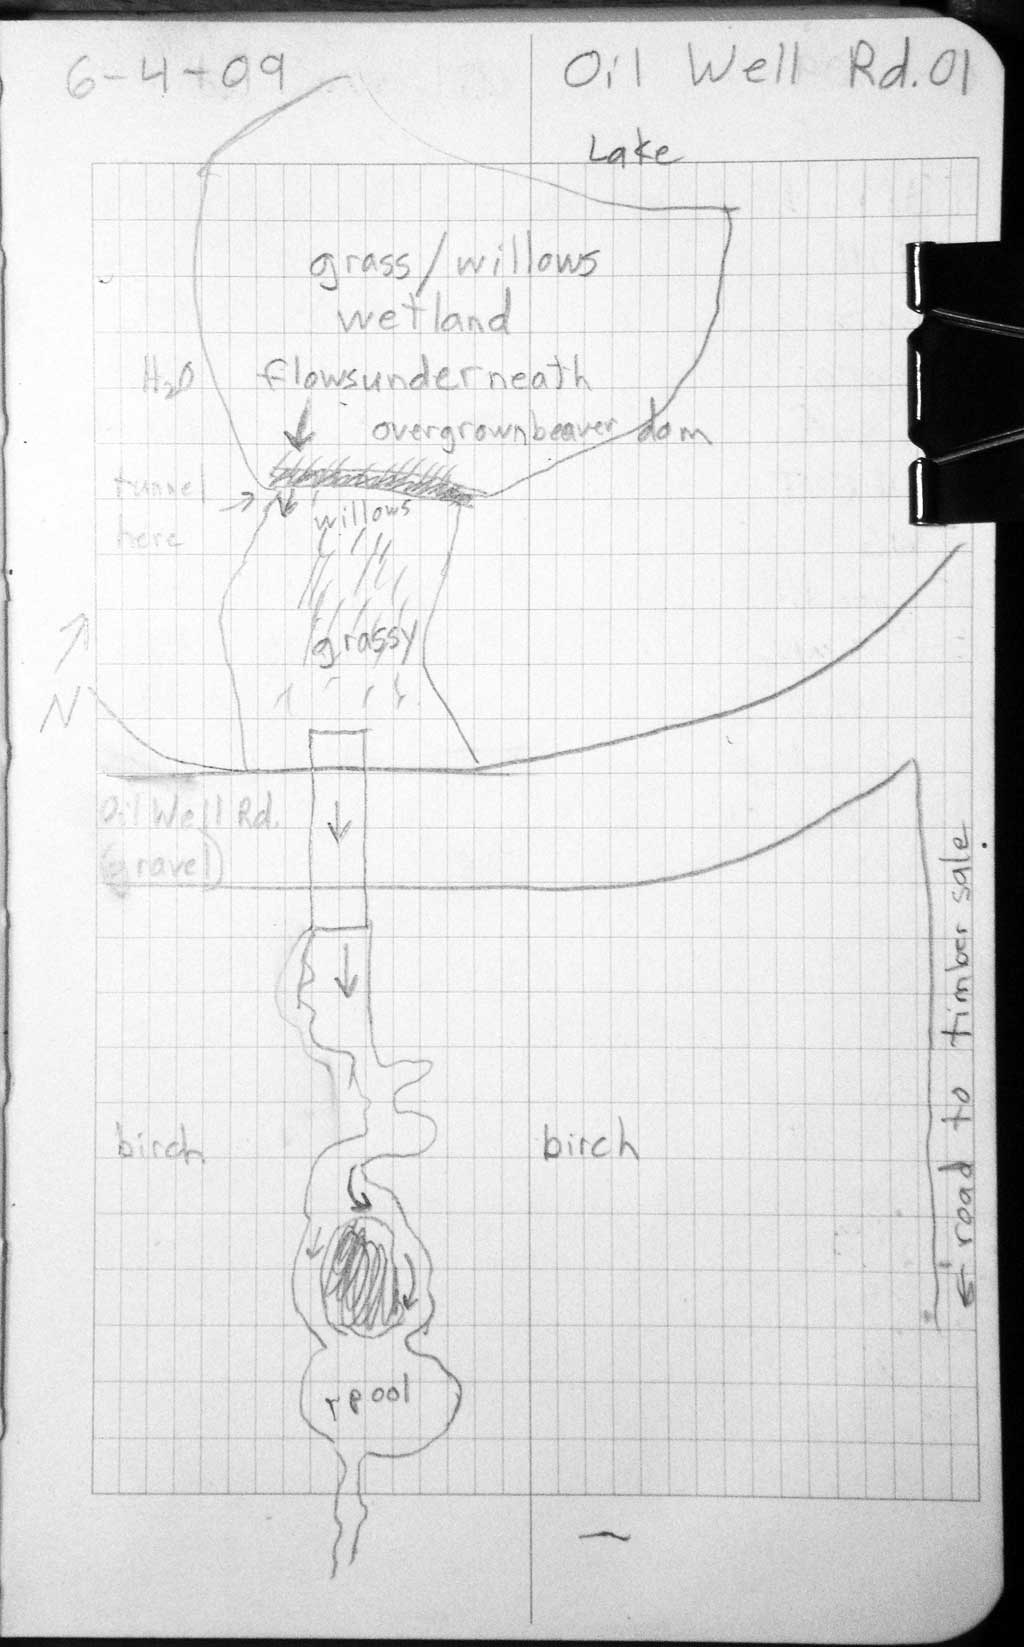 6-4-09
Oil Well Rd.01
Lake
grass/willows
wetland
H2O flows underneath
overgrown beaver dam
tunnel
here
willows
grassy
N
Oil Well Rd.
(gravel)
birch
birch
road to timber sale
pool